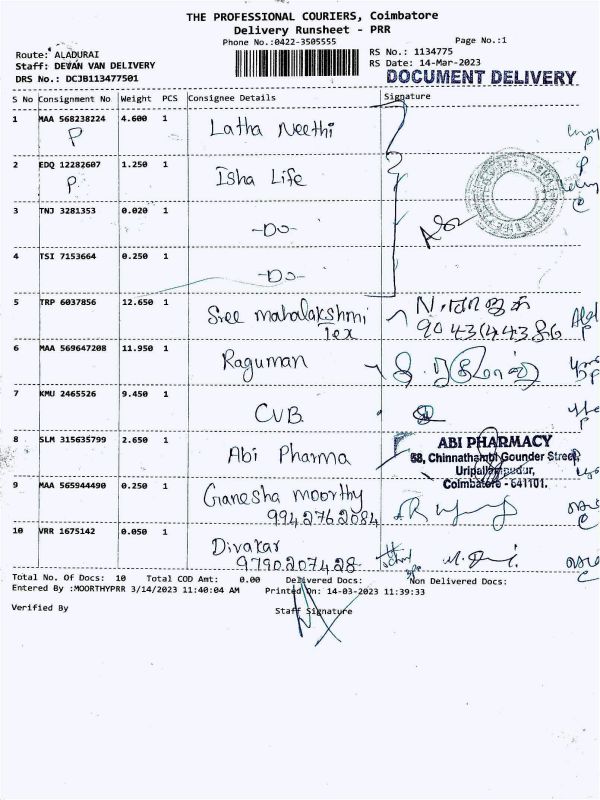 THE PROFESSIONAL COURIERS, Coimbatore
Delivery Runsheet - PRR
Phone No.:0422-3505555
Page No.:1
Route: ALADURAI
Staff: DEVAN VAN DELIVERY
DRS No.: DCJB113477501
RS No.: 1134775
RS Date: 14-Mar-2023
DOCUMENT DELIVERY
S No Consignment No Weight PCS Consignee Details Signature
1 MAA 568238224 4.600 1 Latha Neethi
P
2 EDQ 12282607 1.250 1 Isha Life
P
3 TNJ 3281353 0.020 1 -Do-
4 TSI 7153664 0.250 1 -Do-
5 TRP 6037856 12.650 1 Sree mahalakshmi
Tex
9043144386
6 MAA 569647208 11.950 1 Raguman
7 KMU 2465526 9.450 1 CVB
8 SLM 315635799 2.650 1 Abi Pharma
ABI PHARMACY
58, Chinnathambi Gounder Street,
Uripallampudur,
Coimbatore - 641101.
9 MAA 565944490 0.250 1 Ganesha moorthy
9942762084
10 VRR 1675142 0.050 1 Divakar
9790207428
Total No. Of Docs: 10 Total COD Amt: 0.00 Delivered Docs: Non Delivered Docs:
Entered By :MOORTHYPRR 3/14/2023 11:40:04 AM Printed On: 14-03-2023 11:39:33
Verified By Staff Signature